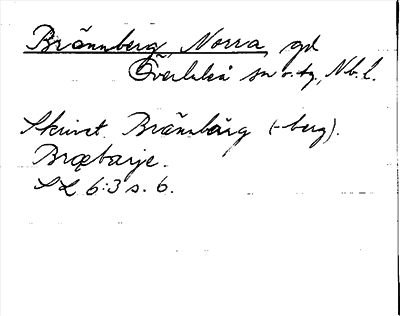 Brännberg, Norra, gd
Överluleå sn o. tg., Nb. l.
Skrivet Brännbärg (-berg).
Bræbarje.
SL 6:3 s. 6.